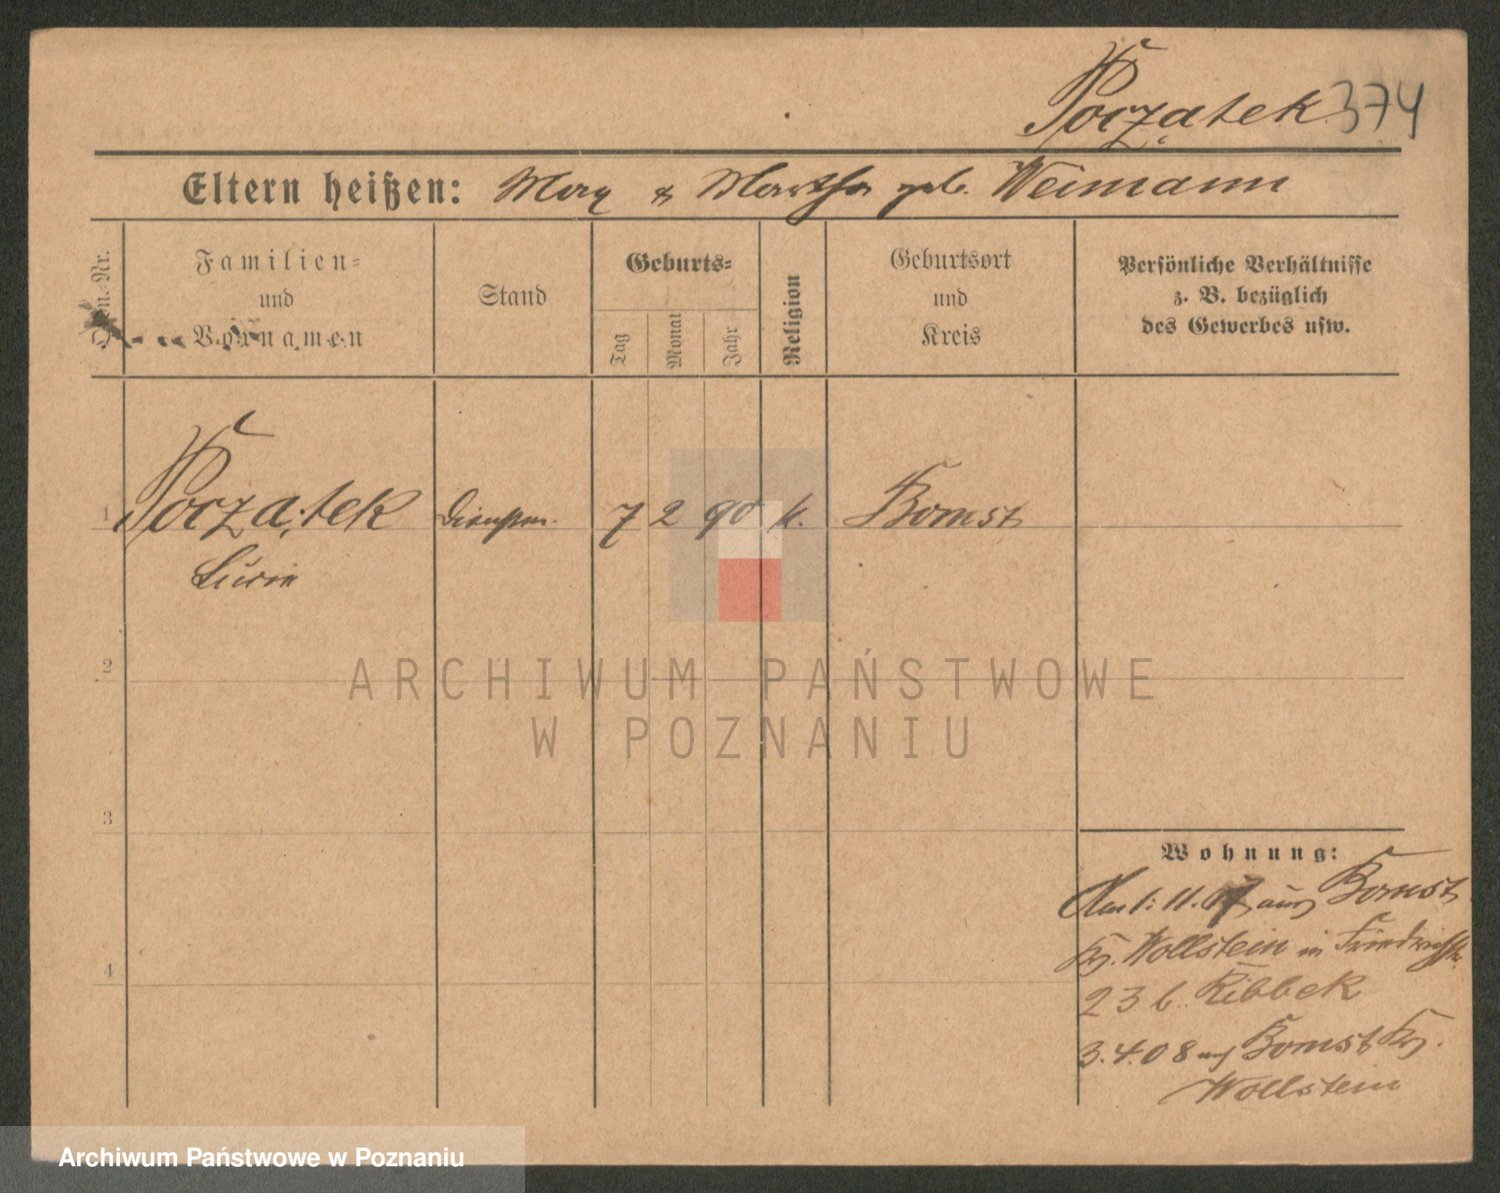 Początek 374
Eltern heißen: & Martha geb. Weimann
Familien-
und
Vornamen
Stand
Geburts-
Tag
Monat
Jahr
Religion
Geburtsort
und
Kreis
Persönliche Verhältnisse
z. B. bezüglich
des Gewerbes usw.
1 Początek 7 2 90 k. Bomst
2
3
4
Wohnung:
1. 11. 07 aus Bomst
Kr. Wollstein in Friedrichstr.
23 b. Ribbek
3. 4. 08 nach Bomst Kr.
Wollstein
ARCHIWUM PAŃSTWOWE
W POZNANIU
Archiwum Państwowe w Poznaniu